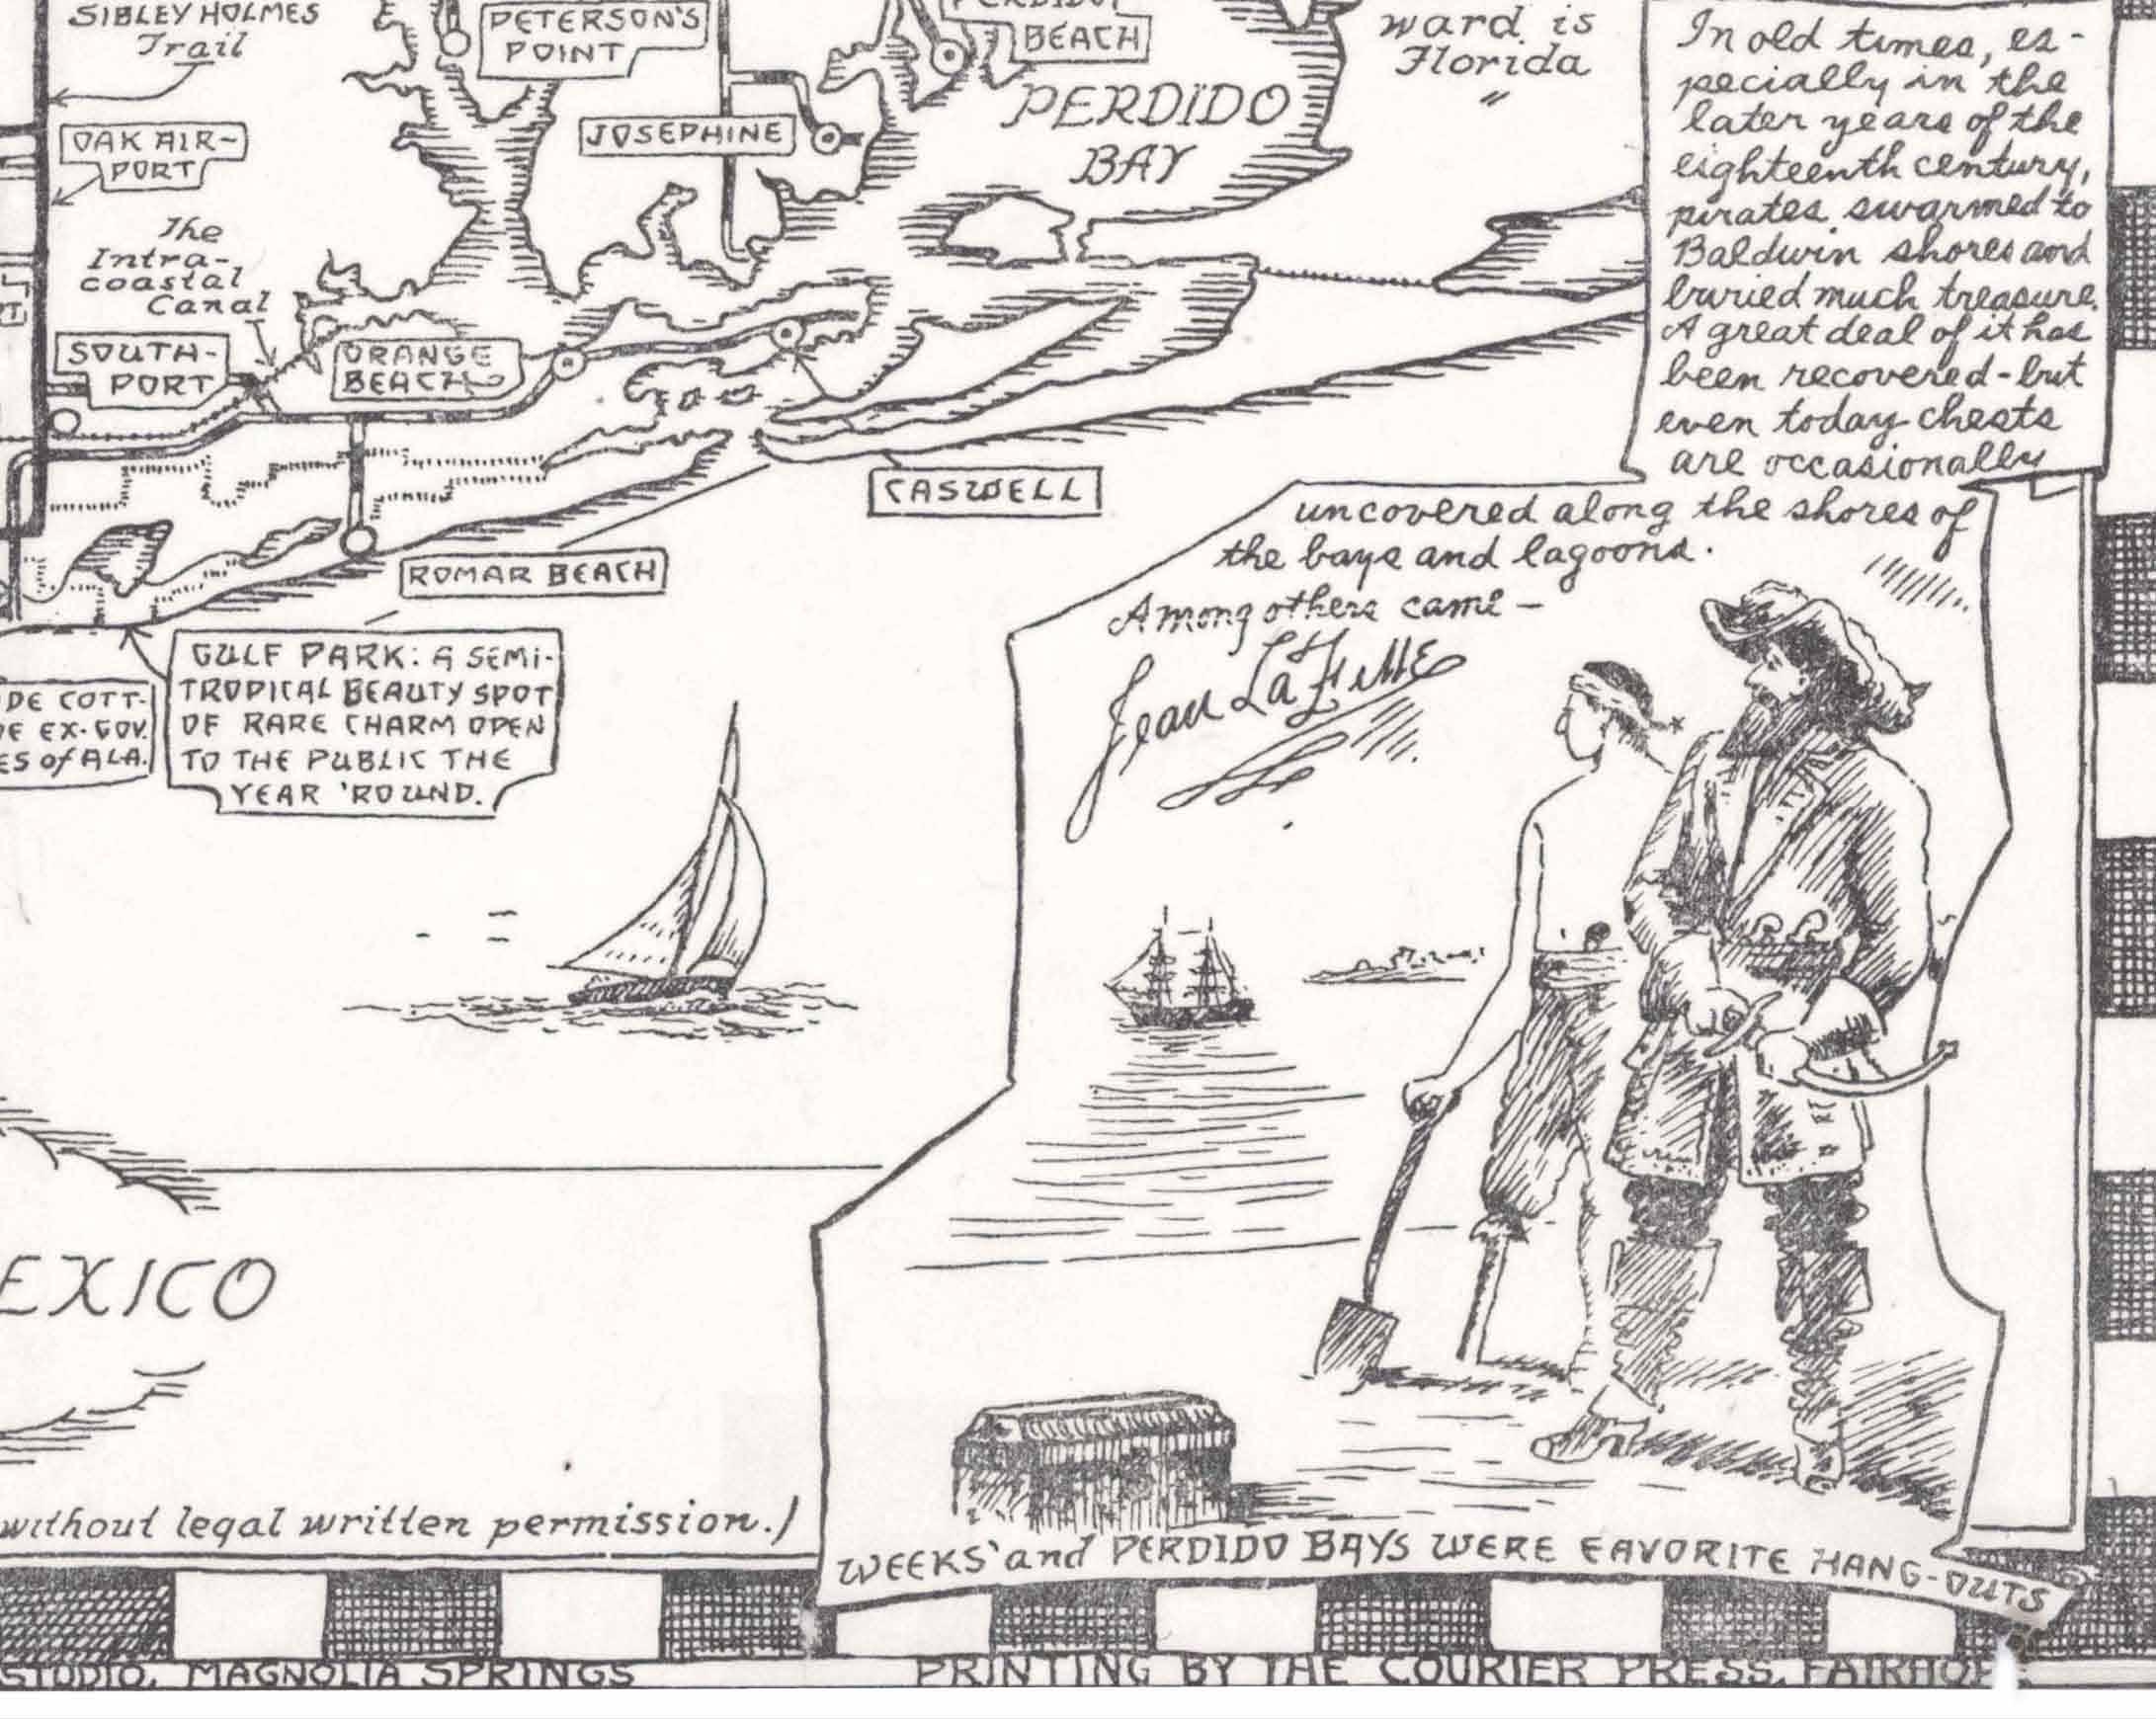 SIBLEY HOLMES
Trail
PETERSON'S
POINT
BEACH
ward is
Florida
"
OAK AIR-
PORT
JOSEPHINE
PERDIDO
BAY
The
Intra-
coastal
Canal
SOUTH-
PORT
ORANGE
BEACH
CASWELL
ROMAR BEACH
GULF PARK: A SEMI-
TROPICAL BEAUTY SPOT
OF RARE CHARM OPEN
TO THE PUBLIC THE
YEAR 'ROUND.
DE COTT-
EX-GOV.
ES of ALA.
In old times, es-
pecially in the
later years of the
eighteenth century,
pirates swarmed to
Baldwin shores and
buried much treasure.
A great deal of it has
been recovered - but
even today chests
are occasionally
uncovered along the shores of
the bays and lagoons.
Among others came -
Jean LaFitte
EXICO
without legal written permission.)
WEEKS' and PERDIDO BAYS WERE FAVORITE HANG-OUTS
STUDIO, MAGNOLIA SPRINGS
PRINTING BY THE COURIER PRESS, FAIRHOPE